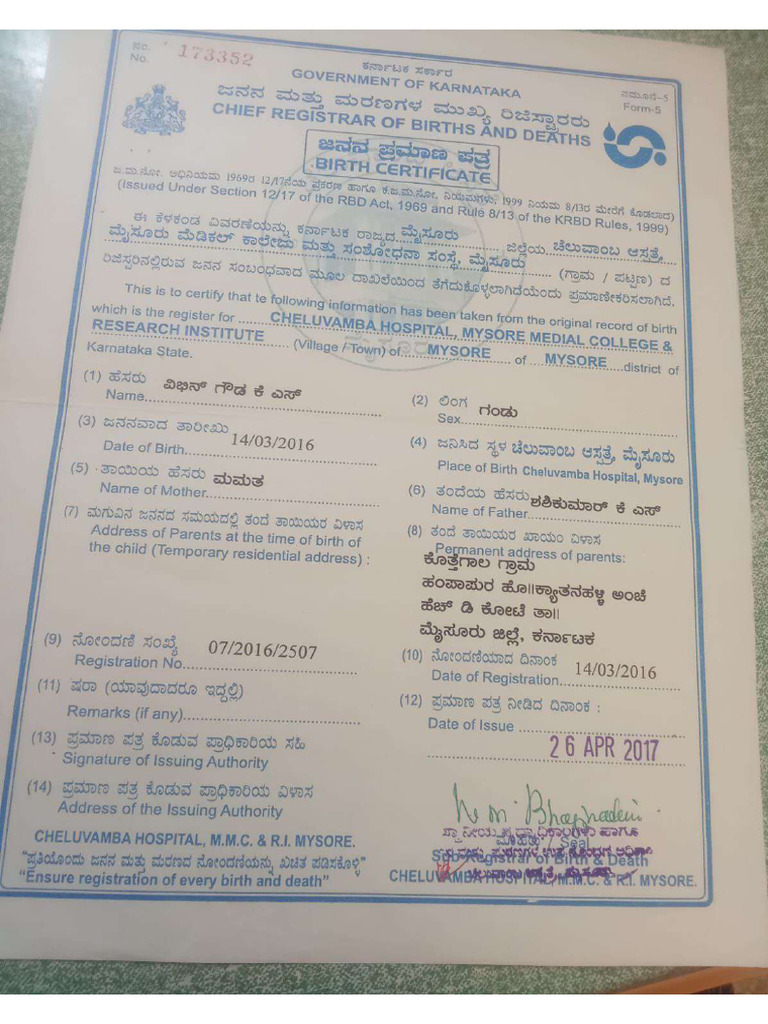 ನಂ.
No. 173352
ಕರ್ನಾಟಕ ಸರ್ಕಾರ
GOVERNMENT OF KARNATAKA
ನಮೂನೆ-5
Form-5
ಜನನ ಮತ್ತು ಮರಣಗಳ ಮುಖ್ಯ ರಿಜಿಸ್ಟ್ರಾರರು
CHIEF REGISTRAR OF BIRTHS AND DEATHS
ಜನನ ಪ್ರಮಾಣ ಪತ್ರ
BIRTH CERTIFICATE
ಜ.ಮ.ನೋ. ಅಧಿನಿಯಮ 1969ರ 12/17ನೆಯ ಪ್ರಕರಣ ಹಾಗೂ ಕ.ಜ.ಮ.ನೋ. ನಿಯಮಗಳು, 1999 ನಿಯಮ 8/13ರ ಮೇರೆಗೆ ಕೊಡಲಾದ)
(Issued Under Section 12/17 of the RBD Act, 1969 and Rule 8/13 of the KRBD Rules, 1999)
ಈ ಕೆಳಕಂಡ ವಿವರಣೆಯನ್ನು ಕರ್ನಾಟಕ ರಾಜ್ಯದ ಮೈಸೂರು ಜಿಲ್ಲೆಯ ಚೆಲುವಾಂಬ ಆಸ್ಪತ್ರೆ,
ಮೈಸೂರು ಮೆಡಿಕಲ್ ಕಾಲೇಜು ಮತ್ತು ಸಂಶೋಧನಾ ಸಂಸ್ಥೆ, ಮೈಸೂರು (ಗ್ರಾಮ / ಪಟ್ಟಣ) ದ
ರಿಜಿಸ್ಟರಿನಲ್ಲಿರುವ ಜನನ ಸಂಬಂಧವಾದ ಮೂಲ ದಾಖಲೆಯಿಂದ ತೆಗೆದುಕೊಳ್ಳಲಾಗಿದೆಯೆಂದು ಪ್ರಮಾಣೀಕರಿಸಲಾಗಿದೆ.
This is to certify that te following information has been taken from the original record of birth
which is the register for CHELUVAMBA HOSPITAL, MYSORE MEDIAL COLLEGE &
RESEARCH INSTITUTE (Village / Town) of MYSORE of MYSORE district of
Karnataka State.
(1) ಹೆಸರು ವಿಭಿನ್ ಗೌಡ ಕೆ ಎಸ್
Name
(2) ಲಿಂಗ ಗಂಡು
Sex
(3) ಜನನವಾದ ತಾರೀಖು
Date of Birth 14/03/2016
(4) ಜನಿಸಿದ ಸ್ಥಳ ಚೆಲುವಾಂಬ ಆಸ್ಪತ್ರೆ, ಮೈಸೂರು
Place of Birth Cheluvamba Hospital, Mysore
(5) ತಾಯಿಯ ಹೆಸರು ಮಮತ
Name of Mother
(6) ತಂದೆಯ ಹೆಸರು ಶಶಿಕುಮಾರ್ ಕೆ ಎಸ್
Name of Father
(7) ಮಗುವಿನ ಜನನದ ಸಮಯದಲ್ಲಿ ತಂದೆ ತಾಯಿಯರ ವಿಳಾಸ
Address of Parents at the time of birth of
the child (Temporary residential address) :
(8) ತಂದೆ ತಾಯಿಯರ ಖಾಯಂ ವಿಳಾಸ
Permanent address of parents:
ಕೊತ್ತೆಗಾಲ ಗ್ರಾಮ
ಹಂಪಾಪುರ ಹೊ||ಕ್ಯಾತನಹಳ್ಳಿ ಅಂಚೆ
ಹೆಚ್ ಡಿ ಕೋಟೆ ತಾ||
ಮೈಸೂರು ಜಿಲ್ಲೆ, ಕರ್ನಾಟಕ
(9) ನೋಂದಣಿ ಸಂಖ್ಯೆ
Registration No. 07/2016/2507
(10) ನೋಂದಣಿಯಾದ ದಿನಾಂಕ
Date of Registration 14/03/2016
(11) ಷರಾ (ಯಾವುದಾದರೂ ಇದ್ದಲ್ಲಿ)
Remarks (if any)
(12) ಪ್ರಮಾಣ ಪತ್ರ ನೀಡಿದ ದಿನಾಂಕ :
Date of Issue
26 APR 2017
(13) ಪ್ರಮಾಣ ಪತ್ರ ಕೊಡುವ ಪ್ರಾಧಿಕಾರಿಯ ಸಹಿ
Signature of Issuing Authority
(14) ಪ್ರಮಾಣ ಪತ್ರ ಕೊಡುವ ಪ್ರಾಧಿಕಾರಿಯ ವಿಳಾಸ
Address of the Issuing Authority
CHELUVAMBA HOSPITAL, M.M.C. & R.I. MYSORE.
"ಪ್ರತಿಯೊಂದು ಜನನ ಮತ್ತು ಮರಣದ ನೋಂದಣಿಯನ್ನು ಖಚಿತ ಪಡಿಸಕೊಳ್ಳಿ"
"Ensure registration of every birth and death"
Seal
Sub-Registrar of Birth & Death
CHELUVAMBA HOSPITAL, M.M.C. & R.I. MYSORE.